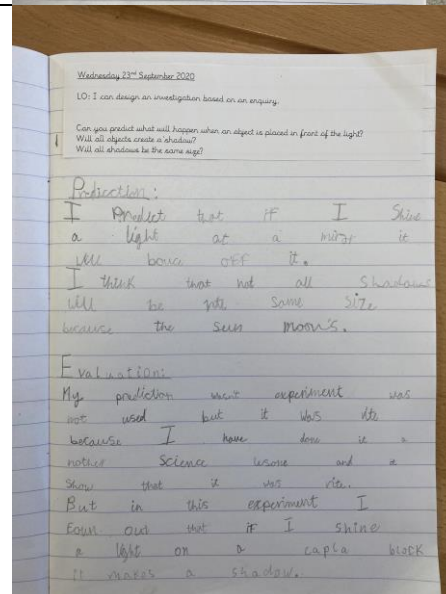 Wednesday 23rd September 2020
LO: I can design an investigation based on an enquiry.
Can you predict what will happen when an object is placed in front of the light?
Will all objects create a shadow?
Will all shadows be the same size?
I Predict tat if I Shine
a light at a it
will off it.
I think that not all Shadows
will be Same Size
because the Sun moon's.
Evaluation:
My prediction experiment was
not used but it was rite
because I have done it a
nother Science and
Show that it was rite.
But in this experiment I
foun out that if I shine
a light on a capla block
it makes a shadow.